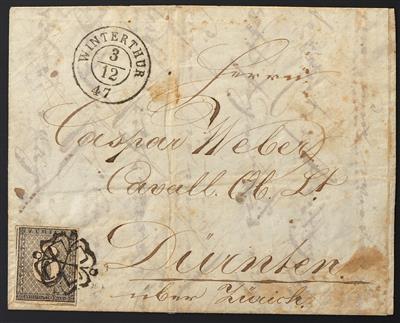 WINTERTHUR
3
12
47
Herrn
Caspar Weber
Cavall. Ob. Lt
Dürnten
über Zürich.
ZURICH
6